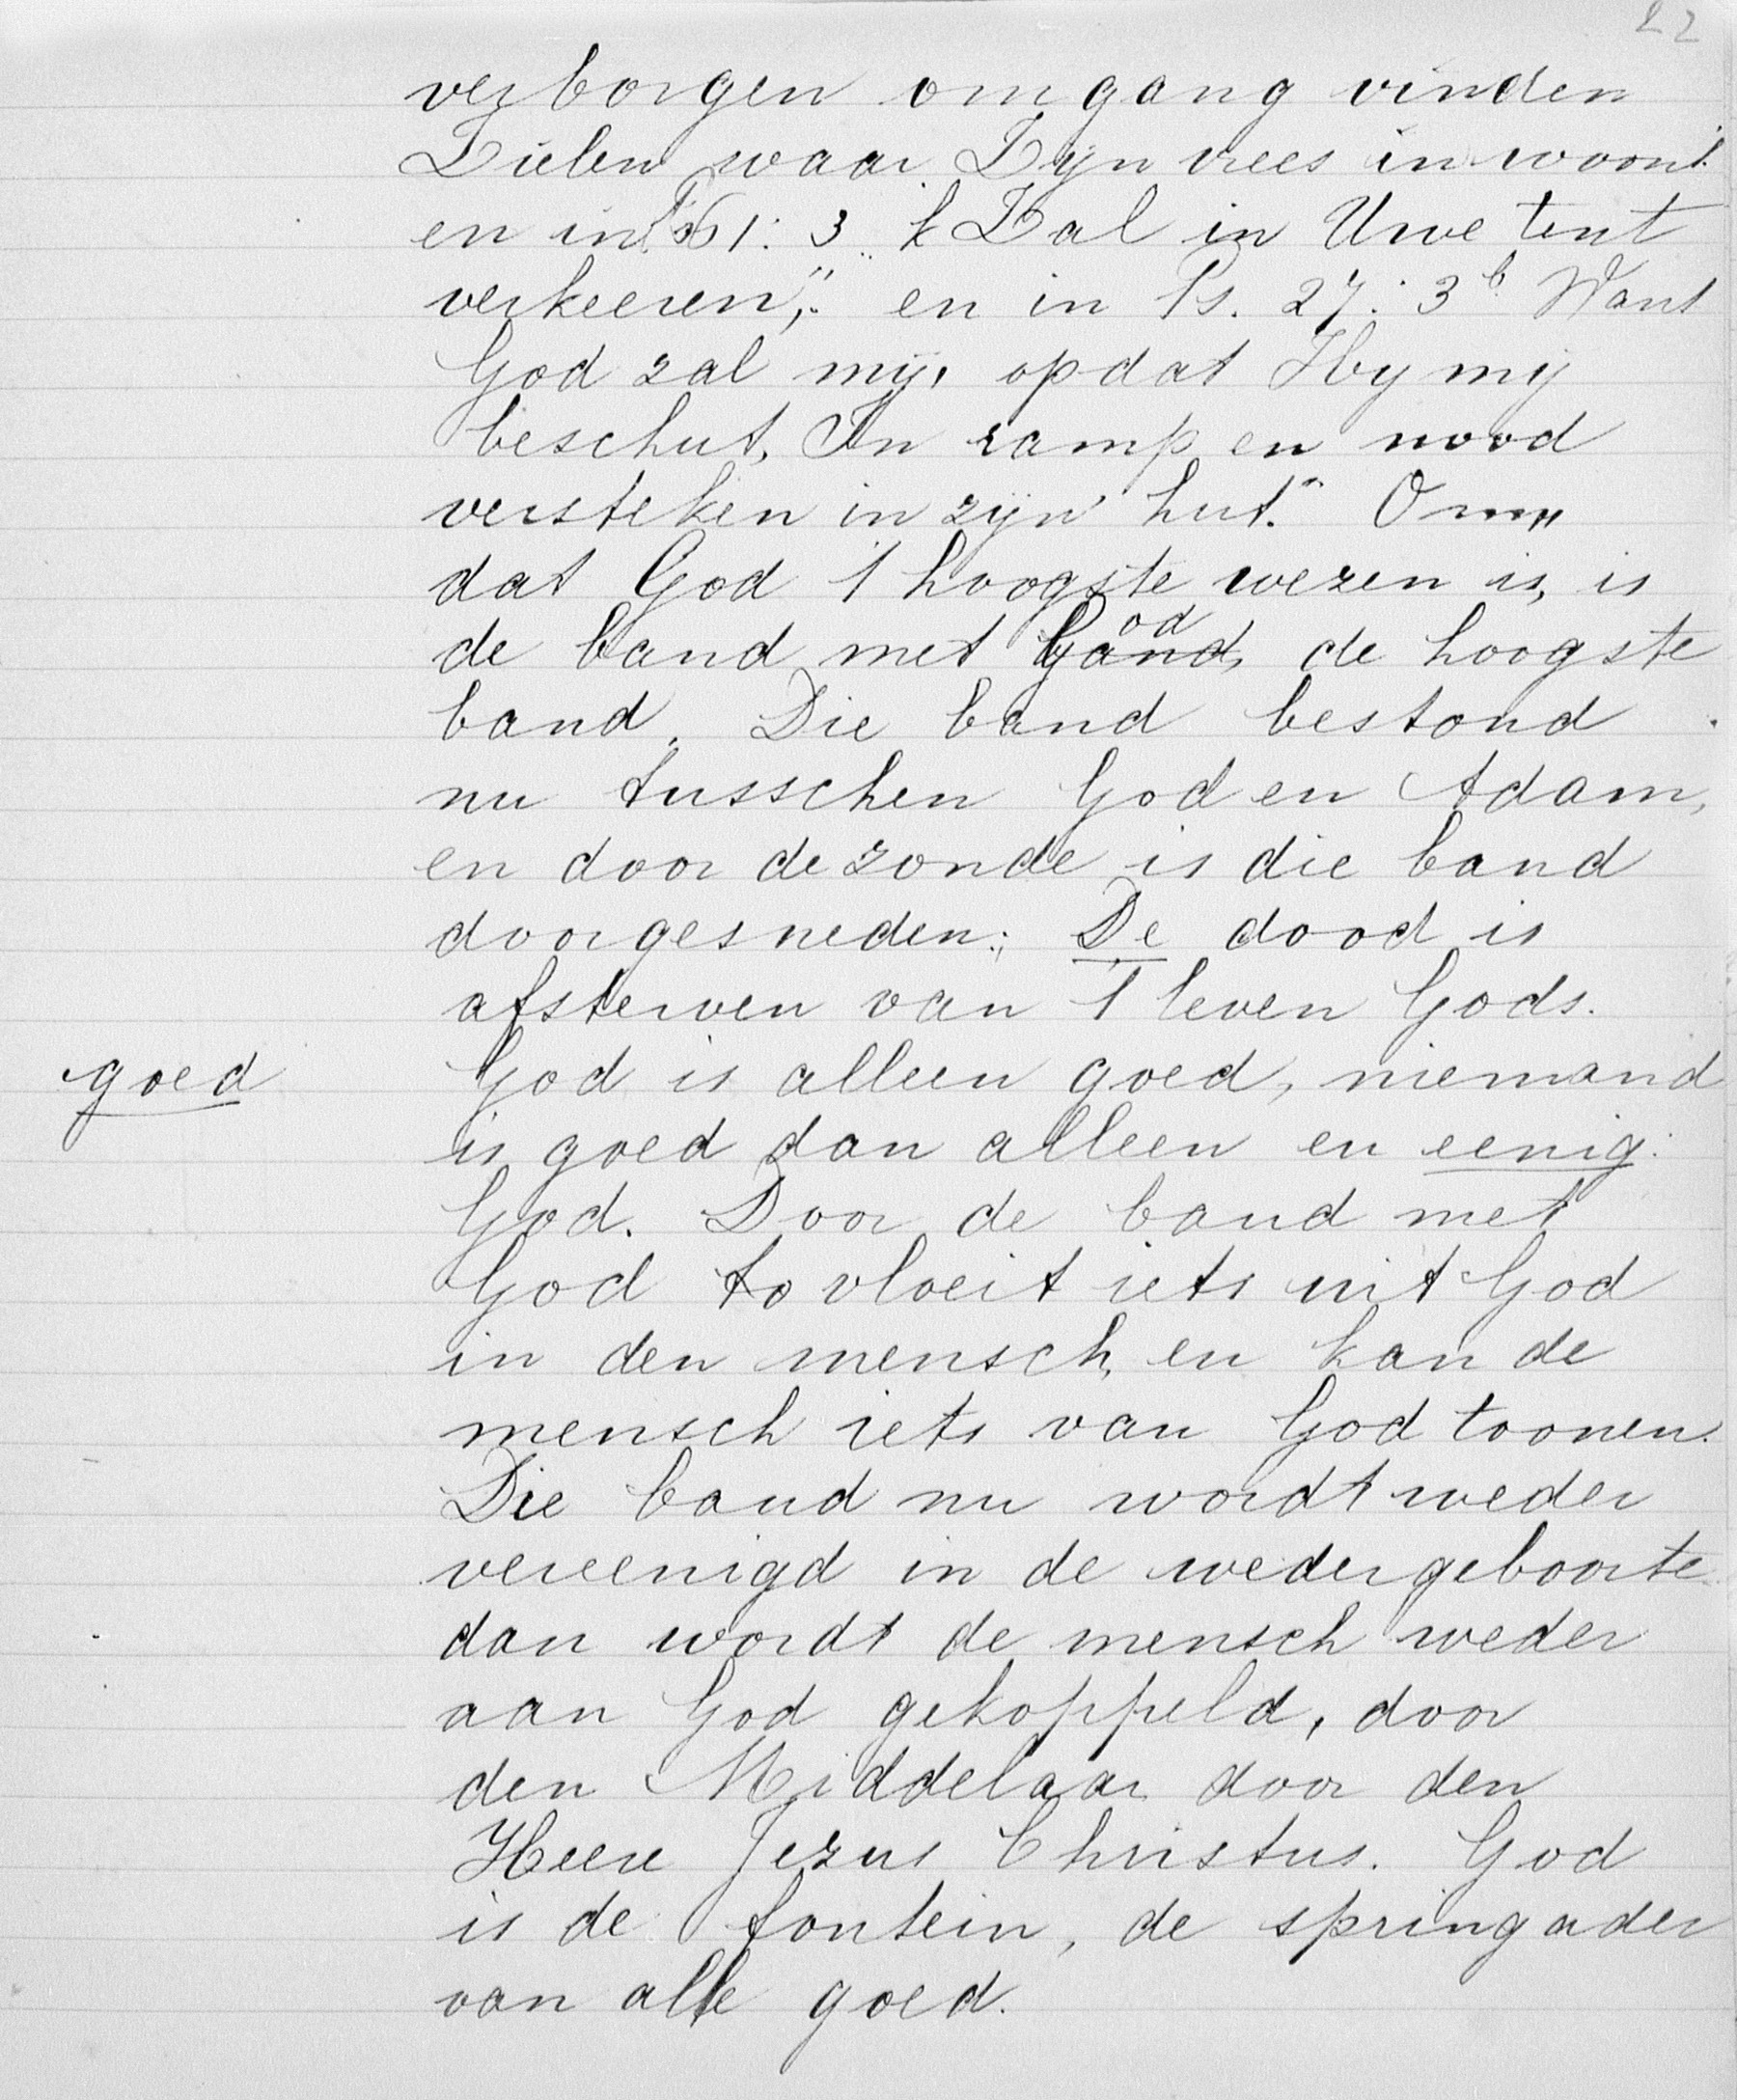 22
verborgen omgang vinden
Zielen waar Zijn vrees in woont.
en in Ps 61:3 „k Zal in Uwe tent
verkeeren," en in Ps. 27:3b Want
God zal mij, opdat Hy mij
beschut, In ramp en nood
versteken in zijn' hut." Om„
dat God 't hoogste wezen is, is
de band met God de hoogste
band. Die band bestond
nu tusschen God en Adam,
en door de zonde is die band
doorgesneden; De dood is
afsterven van 't leven Gods.
goed God is alleen goed, niemand
is goed dan alleen en eenig:
God. Door de band met
God to vloeit iets uit God
in den mensch, en kan de
mensch iets van God toonen.
Die band nu wordt weder
vereenigd in de wedergeboorte
dan wordt de mensch weder
aan God gekoppeld, door
den Middelaar door den
Heere Jezus Christus. God
is de fontein, de springader
van alle goed.